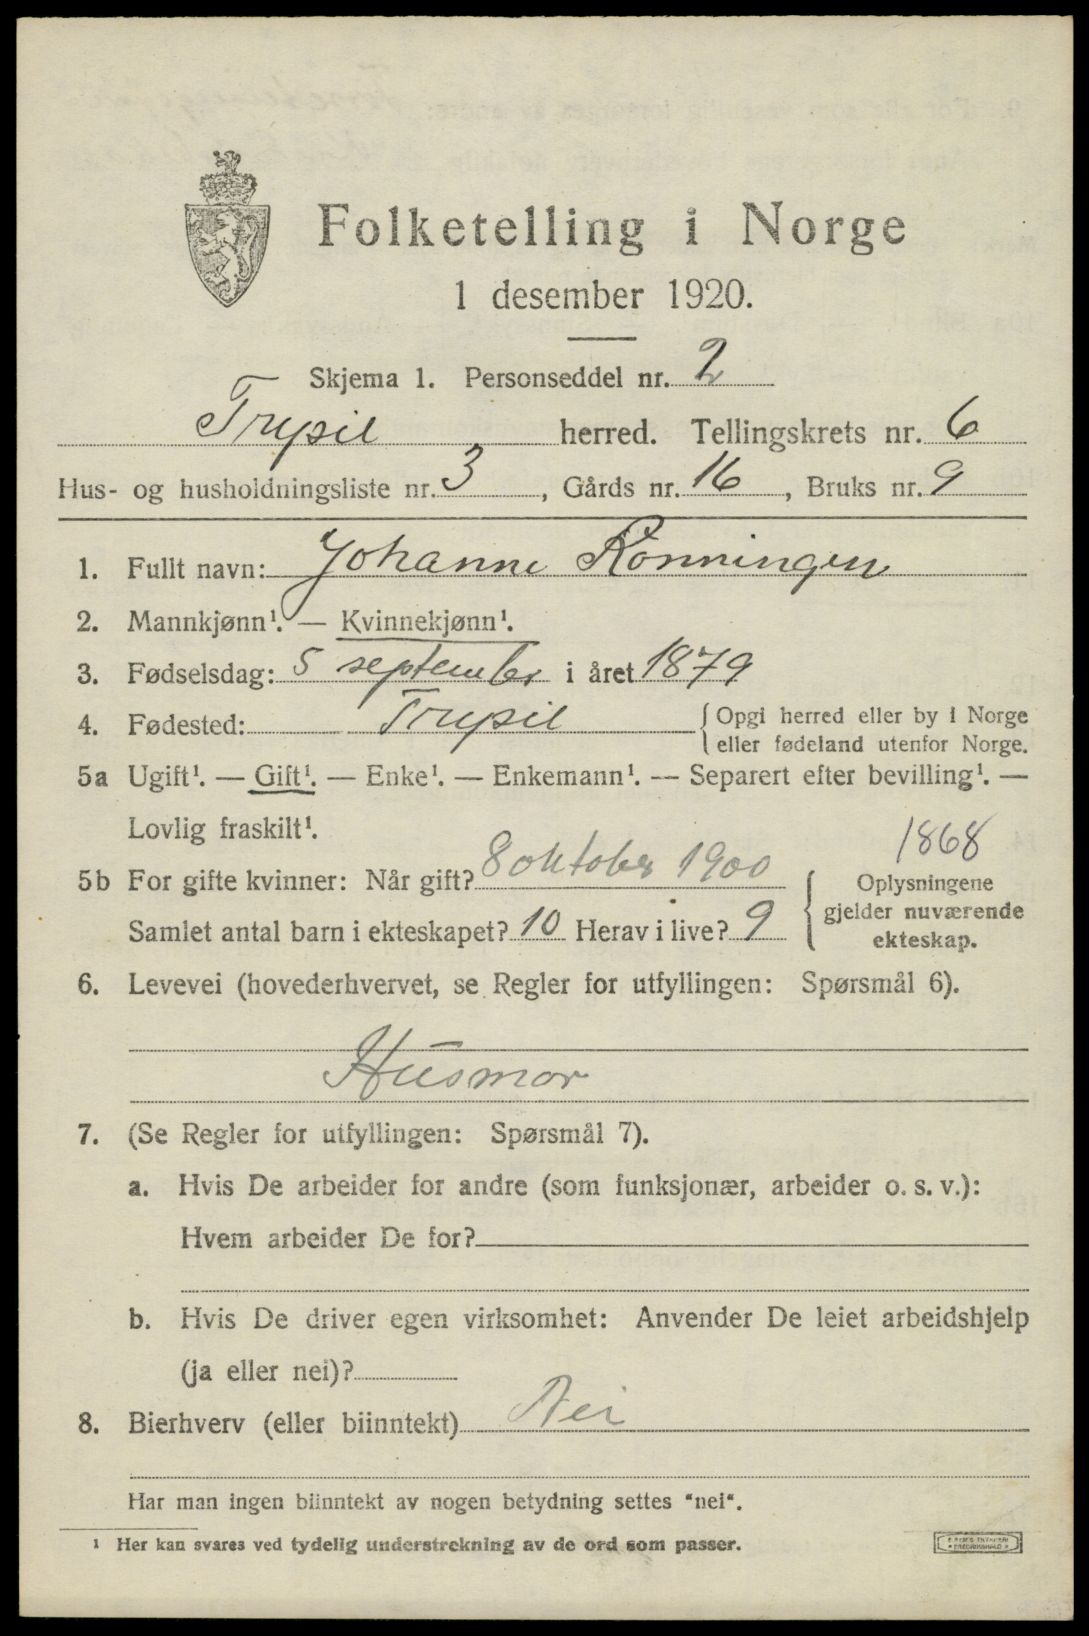 Folketelling i Norge
1 desember 1920.
Skjema 1. Personseddel nr. 2
Trysil herred. Tellingskrets nr. 6
Hus- og husholdningsliste nr. 3, Gårds nr. 16, Bruks nr. 9
1. Fullt navn: Johanne Rønningen
2. Mannkjønn¹. — Kvinnekjønn¹.
3. Fødselsdag: 5 september i året 1879
4. Fødested: Trysil { Opgi herred eller by i Norge
eller fødeland utenfor Norge.
5a Ugift¹. — Gift¹. — Enke¹. — Enkemann¹. — Separert efter bevilling¹. —
Lovlig fraskilt¹.
1868
5b For gifte kvinner: Når gift? 8 oktober 1900
Samlet antal barn i ekteskapet? 10 Herav i live? 9
{ Oplysningene
gjelder nuværende
ekteskap.
6. Levevei (hovederhvervet, se Regler for utfyllingen: Spørsmål 6).
Husmor
7. (Se Regler for utfyllingen: Spørsmål 7).
a. Hvis De arbeider for andre (som funksjonær, arbeider o. s. v.):
Hvem arbeider De for?
b. Hvis De driver egen virksomhet: Anvender De leiet arbeidshjelp
(ja eller nei)?
8. Bierhverv (eller biinntekt) Nei
Har man ingen biinntekt av nogen betydning settes "nei".
¹ Her kan svares ved tydelig understrekning av de ord som passer.